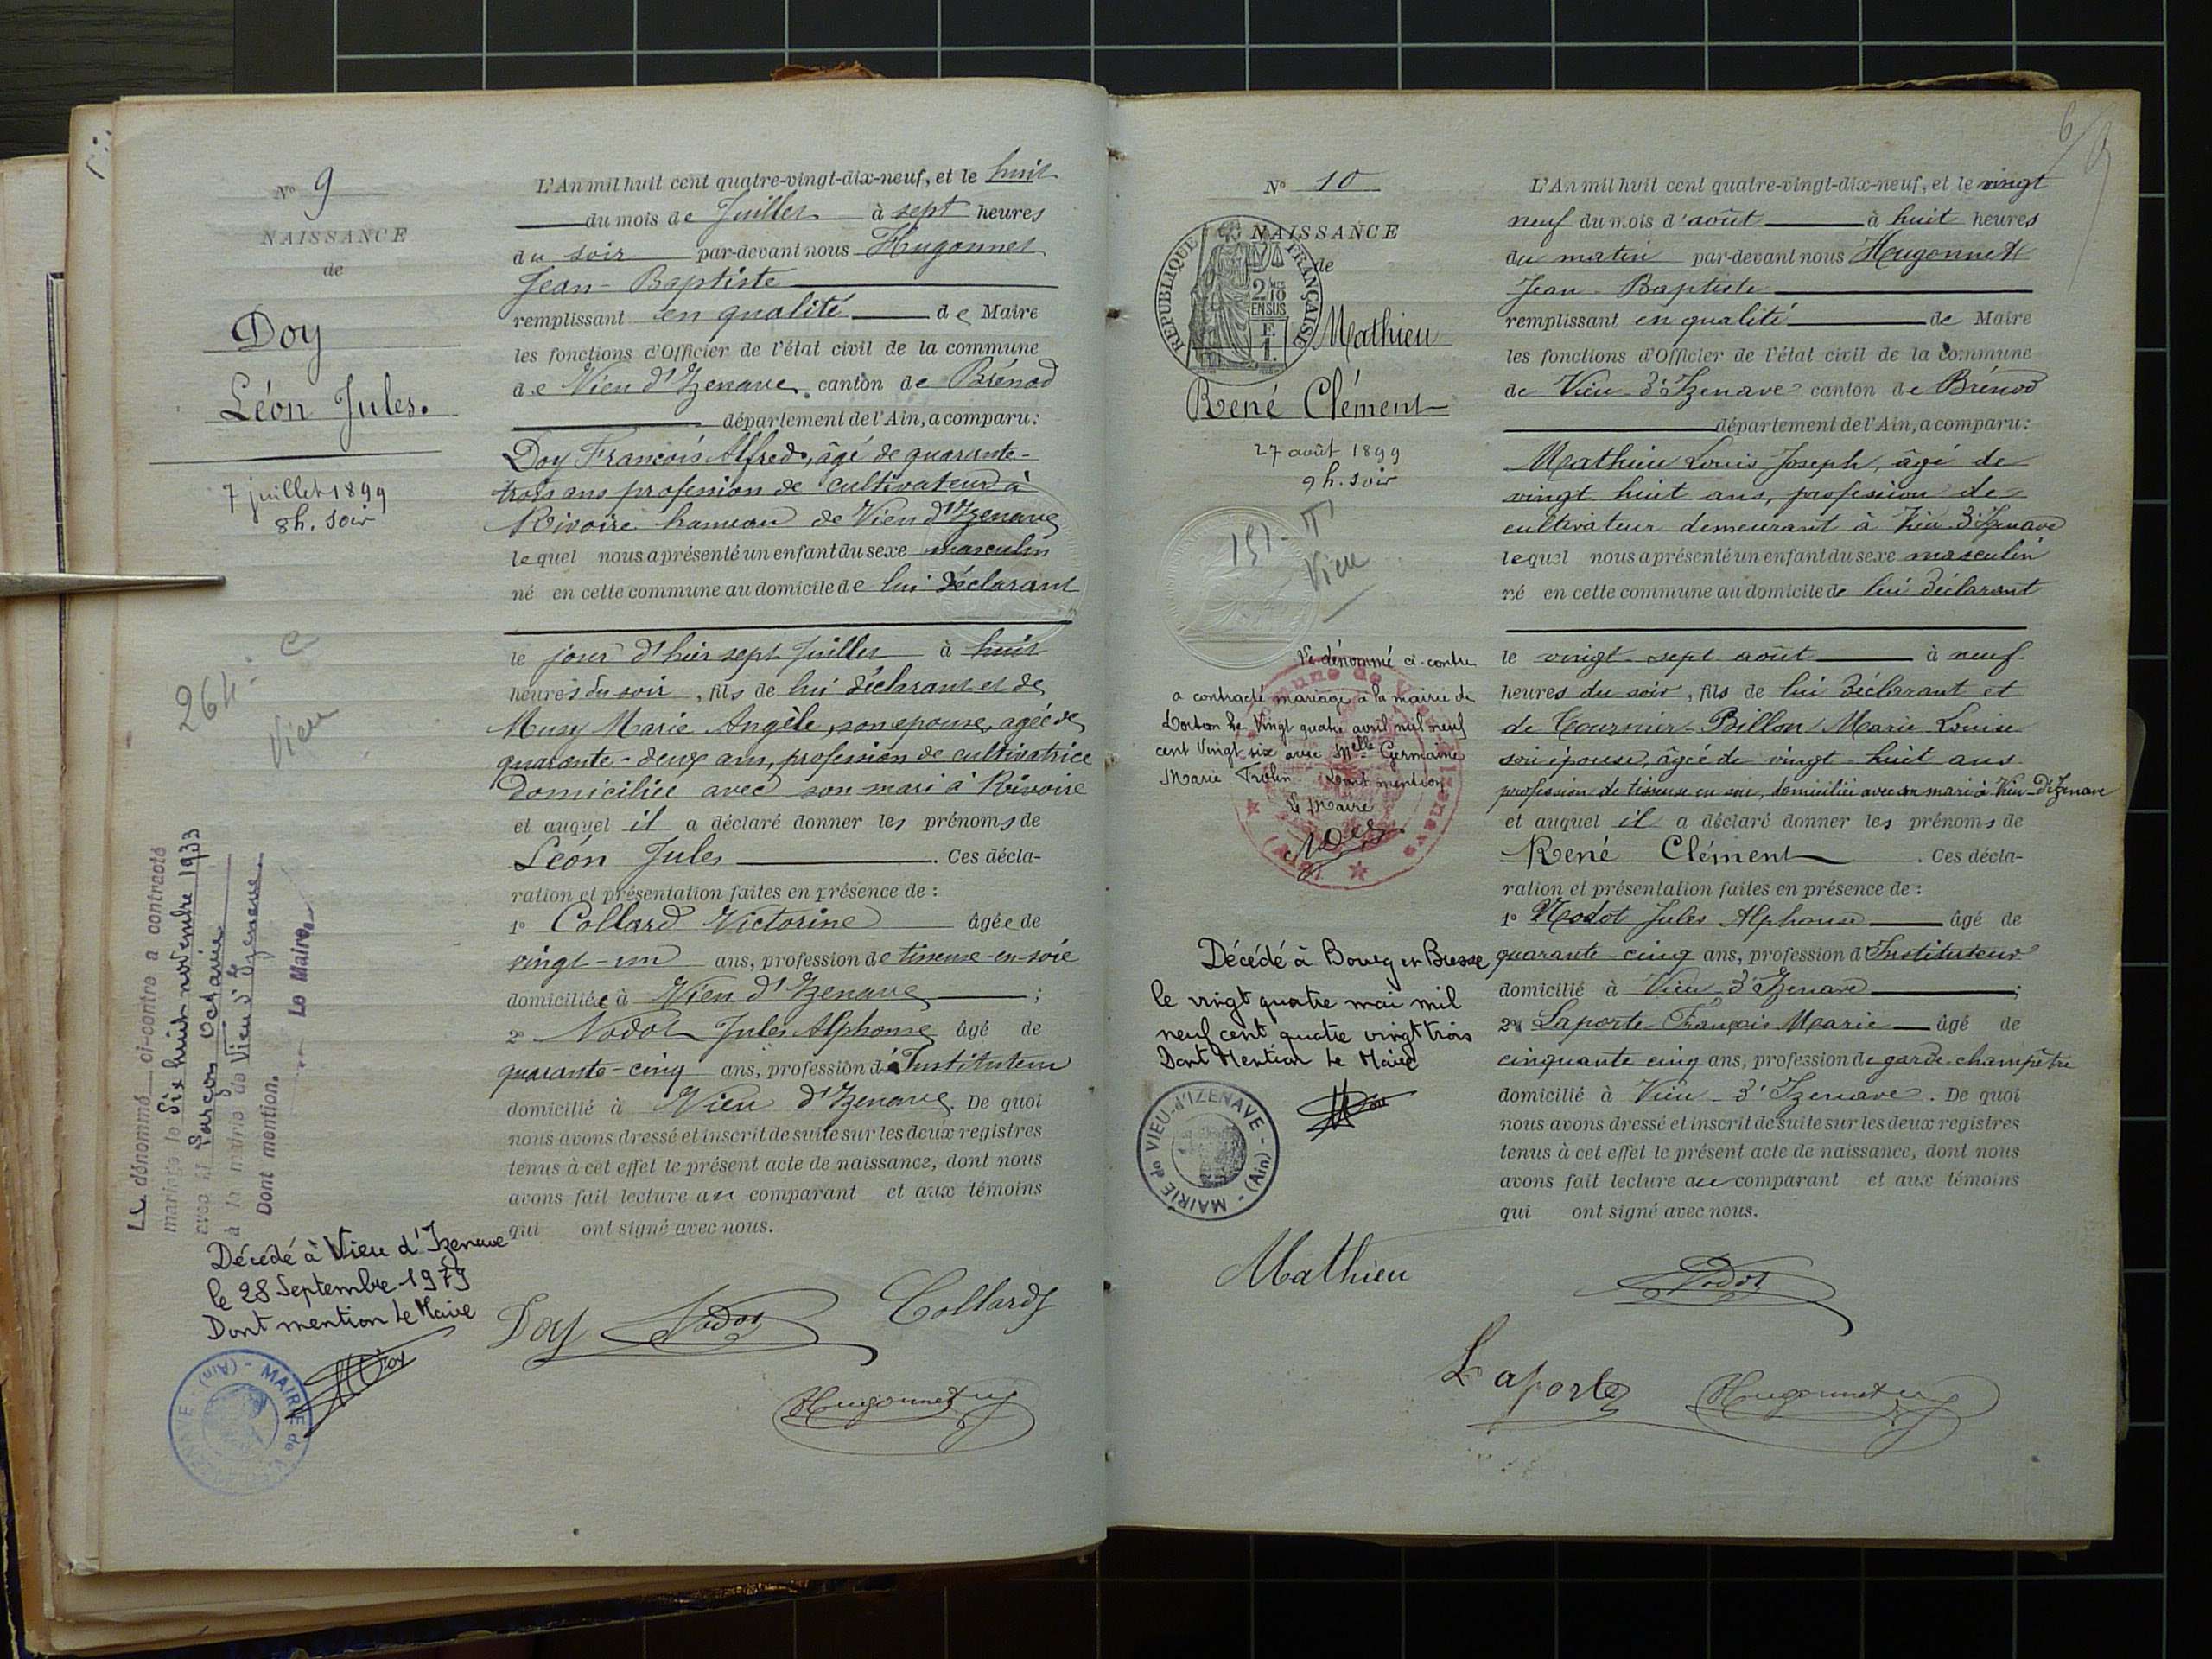 N° 9
NAISSANCE
de
Doy
Léon Jules.
7 juillet 1899
8h. soir
264
Vieu
Le dénommé ci-contre a contracté
mariage le dix huit novembre 1933
avec
à la mairie de Vieu d'Izenave
Dont mention. Le Maire,
Décédé à Vieu d'Izenave
le 28 Septembre 1979
Dont mention Le Maire
MAIRIE de VIEU-d'IZENAVE - (Ain)
L'An mil huit cent quatre-vingt-dix-neuf, et le huit
du mois de Juillet à sept heures
du soir par-devant nous Hugonnet
Jean-Baptiste
remplissant en qualité de Maire
les fonctions d'Officier de l'état civil de la commune
de Vieu d'Izenave canton de Brénod
département de l'Ain, a comparu:
Doy François Alfred, âgé de quarante-
trois ans profession de cultivateur à
Rivoire hameau de Vieu d'Izenave
lequel nous a présenté un enfant du sexe masculin
né en cette commune au domicile de lui déclarant
le jour d'hier sept Juillet à huit
heures du soir, fils de lui déclarant et de
Musy Marie Angèle, son epouse, agée de
quarante-deux ans, profession de cultivatrice
domiciliée avec son mari à Rivoire
et auquel il a déclaré donner les prénoms de
Léon Jules. Ces décla-
ration et présentation faites en présence de :
1° Collard Victorine âgée de
vingt-un ans, profession de tisseuse en soie
domiciliée à Vieu d'Izenave ;
2° Nodot Jules Alphonse âgé de
quarante-cinq ans, profession d'Instituteur
domicilié à Vieu d'Izenave. De quoi
nous avons dressé et inscrit de suite sur les deux registres
tenus à cet effet le présent acte de naissance, dont nous
avons fait lecture au comparant et aux témoins
qui ont signé avec nous.
Doy Nodot Collard
Hugonnet
6
N° 10
NAISSANCE
de
REPUBLIQUE FRANÇAISE
2/10
EN SUS
Mathieu
René Clément
27 août 1899
9h. soir
151
Vieu
Le dénommé ci-contre
a contracté mariage à la mairie de
le vingt quatre avril mil neuf
cent vingt six avec Melle Germaine
Marie Dont mention
Le Maire
Décédé à Bourg en Bresse
le vingt quatre mai mil
neuf cent quatre vingt trois
Dont Mention Le Maire
MAIRIE de VIEU-d'IZENAVE - (Ain)
L'An mil huit cent quatre-vingt-dix-neuf, et le vingt
neuf du mois d'août à huit heures
du matin par-devant nous Hugonnet
Jean-Baptiste
remplissant en qualité de Maire
les fonctions d'Officier de l'état civil de la commune
de Vieu-d'Izenave canton de Brénod
département de l'Ain, a comparu:
Mathieu Louis Joseph, âgé de
vingt huit ans, profession de
cultivateur demeurant à Vieu d'Izenave
lequel nous a présenté un enfant du sexe masculin
né en cette commune au domicile de lui déclarant
le vingt-sept août à neuf
heures du soir, fils de lui déclarant et
de Tournier-Billon Marie Louise
son épouse, âgée de vingt-huit ans
profession de tisseuse en soie, domiciliée avec son mari à Vieu-d'Izenave
et auquel il a déclaré donner les prénoms de
René Clément. Ces décla-
ration et présentation faites en présence de :
1° Nodot Jules Alphonse âgé de
quarante-cinq ans, profession d'Instituteur
domicilié à Vieu d'Izenave ;
2° Laporte François Marie âgé de
cinquante cinq ans, profession de garde-champêtre
domicilié à Vieu-d'Izenave. De quoi
nous avons dressé et inscrit de suite sur les deux registres
tenus à cet effet le présent acte de naissance, dont nous
avons fait lecture au comparant et aux témoins
qui ont signé avec nous.
Mathieu Nodot
Laporte Hugonnet